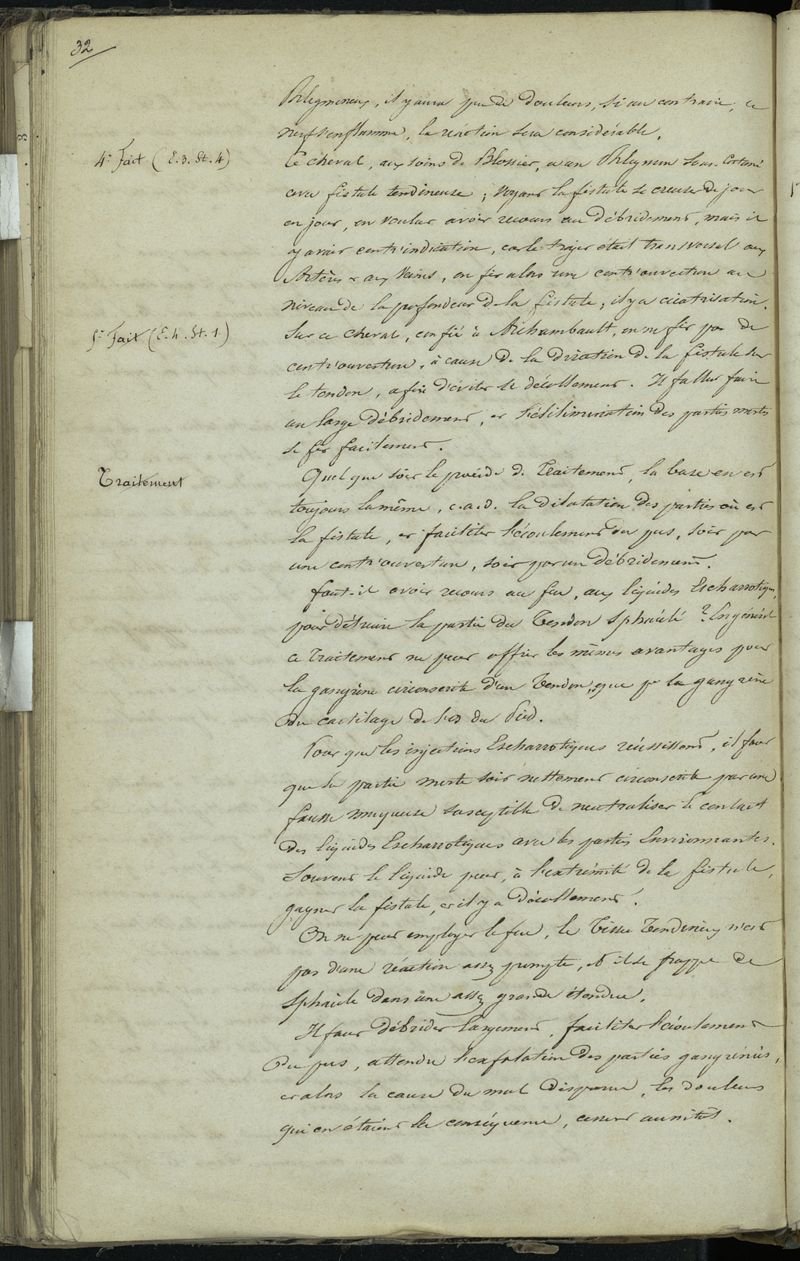 32
Phlegmoneux, il y aura peu de douleurs, si au contraire, ce
nerf s'enflamme, la réaction sera considérable.
4e fait (E. 3. St. 4)
Ce cheval, aux soins de Blossier, a un Phlegmon sous-cortané
avec fistule tendineuse ; voyant la fistule se creuser de jour
en jour, on voulut avoir recours au débridement, mais il
y avait contr'indication, car le trajet était transversal aux
Artères & aux Veines, on fit alors une contr'ouverture au
niveau de la profondeur de la fistule ; il y a cicatrisation.
5e fait (E. 4. St. 1.)
Sur ce cheval, confié à Archambault, on ne fit pas de
contr'ouverture, à cause de la direction de la fistule sur
le tendon, afin d'éviter le décollement. Il fallut faire
un large débridement, et l'élimination des parties mortes
se fit facilement.
Traitement
Quel que soit le procédé de Traitement, la base en est
toujours la même, c.a.d. la dilatation des parties où est
la fistule, et faciliter l'écoulement du pus, soit par
une contr'ouverture, soit par un débridement.
Faut-il avoir recours au feu, aux liquides Escharrotiques,
pour détruire la partie du Tendon Sphacélé ? En général
ce traitement ne peut offrir les mêmes avantages pour
la gangrène circonscrite d'un Tendon, que pr la gangrène
du cartilage de l'os du Pied.
Pour que les injections Escharrotiques réussissent, il faut
que la partie morte soit nettement circonscrite par une
fausse muqueuse susceptible de neutraliser le contact
des liquides Escharrotiques avec les parties Environnantes.
Souvent le liquide peut, à l'extrémité de la fistule,
gagner la fistule, et il y a décollement.
On ne peut employer le feu, le Tissu Tendineux n'est
pas d'une réaction assez prompte, & il se frappe de
Sphacèle dans une assez grande étendue.
Il faut débrider largement, faciliter l'écoulement
du pus, attendre l'exfoliation des parties gangrénées,
et alors la cause du mal disparue, les douleurs
qui en étaient la conséquence, cessent aussitôt.